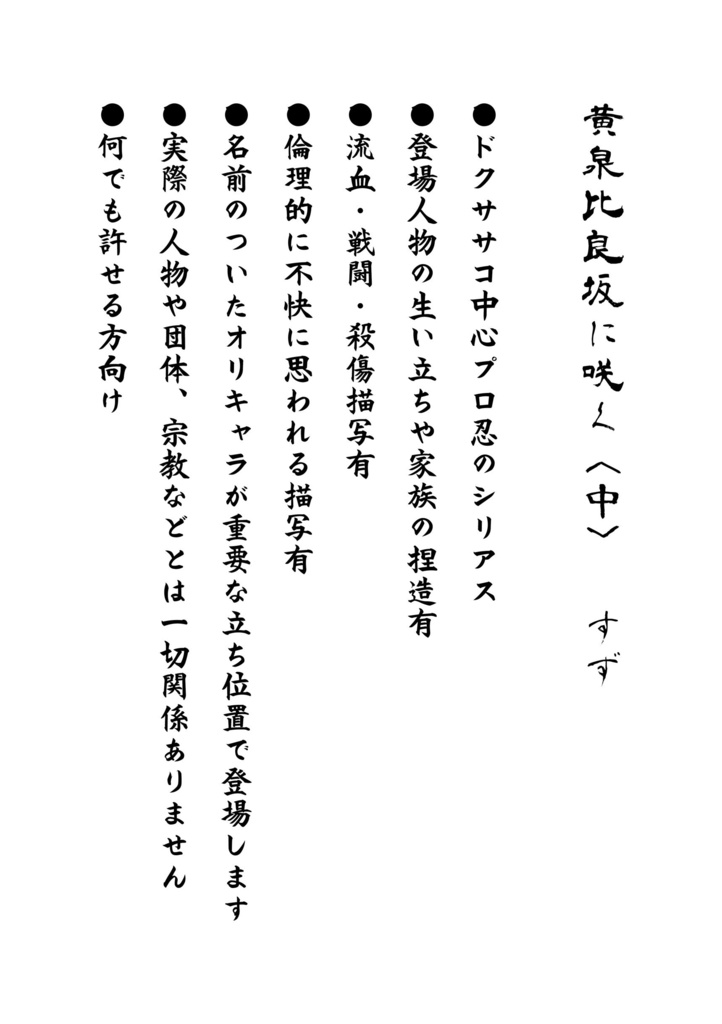 黄泉比良坂に咲く〈中〉　すず
●ドクササコ中心プロ忍のシリアス
●登場人物の生い立ちや家族の捏造有
●流血・戦闘・殺傷描写有
●倫理的に不快に思われる描写有
●名前のついたオリキャラが重要な立ち位置で登場します
●実際の人物や団体、宗教などとは一切関係ありません
●何でも許せる方向け